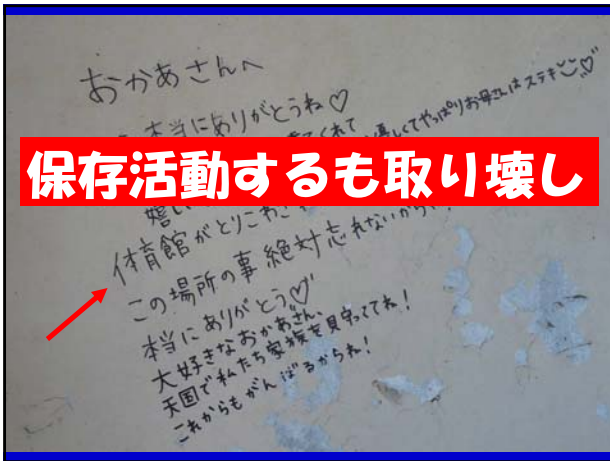 おかあさんへ
本当にありがとうね♡
てくれて
しくてやっぱりお母さんはステキ
保存活動するも取り壊し
嬉し
体育館がとりこわさ
この場所の事絶対忘れないから
本当にありがとう♡
大好きなおかあさん、
天国で私たち家族を見守っててね！
これからもがんばるからね！